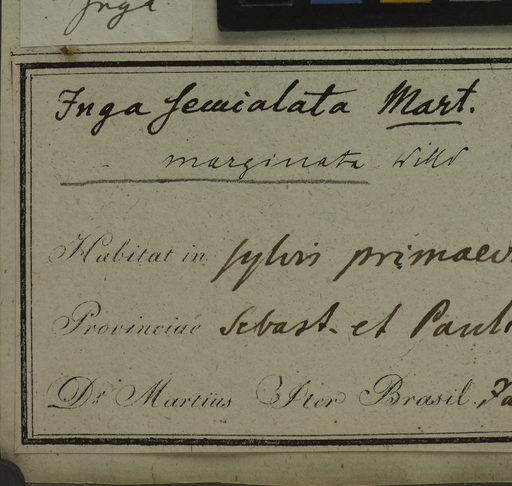 Inga
Inga semialata Mart.
marginata Willd
Habitat in sylvis primaev
Provinciae Sebast. et Pauli
Dr. Martius Iter Brasil.